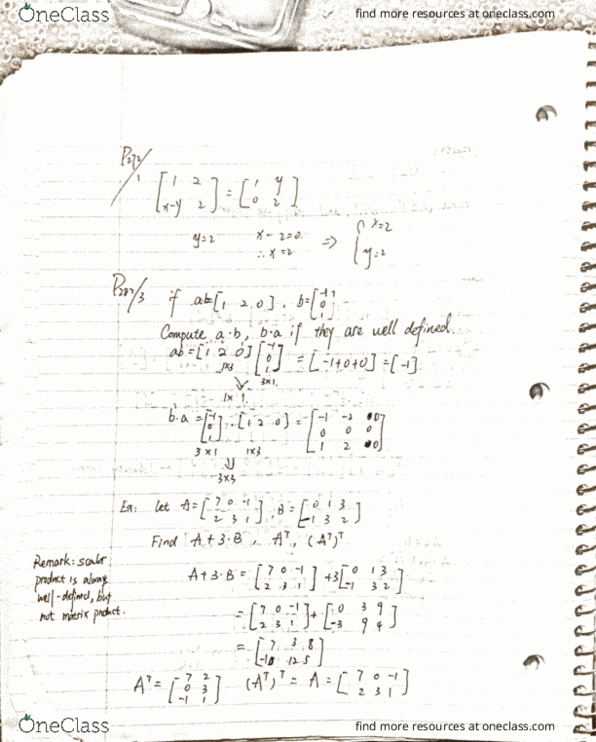 OneClass
find more resources at oneclass.com
P272/1
[1 2; x-y 2] = [1 y; 0 2]
y=2 x-2=0 ∴x=2 ⇒ { x=2 y=2
P287/3 if a=[1 2 0], b=[-1 0 1]
Compute a·b, b·a if they are well defined.
ab=[1 2 0][-1 0 1] = [-1+0+0]=[-1]
1x3 3x1
1x1
b·a=[-1 0 1]·[1 2 0]=[-1 -2 0; 0 0 0; 1 2 0]
3x1 1x3
3x3
Ex: Let A=[7 0 -1; 2 3 1], B=[0 1 3; -1 3 2]
Find A+3·B, Aᵀ, (Aᵀ)ᵀ
Remark: scalar
product is always
well-defined, but
not matrix product.
A+3·B = [7 0 -1; 2 3 1] +3[0 1 3; -1 3 2]
= [7 0 -1; 2 3 1]+[0 3 9; -3 9 4]
= [7 3 8; -10 12 5]
Aᵀ=[7 2; 0 3; -1 1] (Aᵀ)ᵀ = A = [7 0 -1; 2 3 1]
OneClass
find more resources at oneclass.com